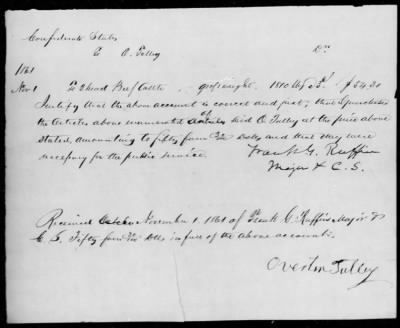 Confederate States
To O. Tulley Dr
1861
Nov 1 To 2 head Beef Cattle gross weight 1810 lbs 3¢ $54.30
I certify that the above account is correct and just; that I purchased
of
the Articles above enumerated said O Tulley at the price above
stated, amounting to fifty four Dolls and that they were
necessary for the public service.
Frank G. Ruffin
Major & C.S.
Received November 1, 1861 of Frank G. Ruffin Major &
C. S. Fifty four Dolls in full of the above account.
Overton Tulley